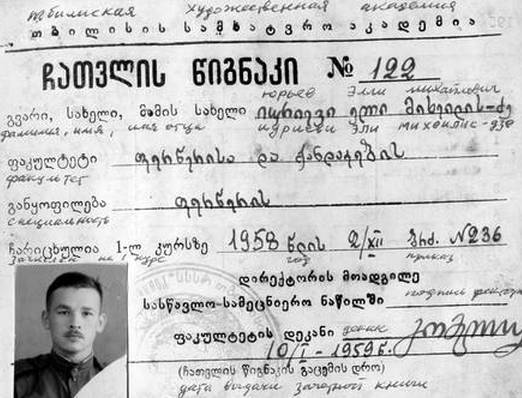 Тбилисская художественная академия
თბილისის სამხატვრო აკადემია
ჩათვლის წიგნაკი № 122
Юрьев Элли Михайлович
გვარი, სახელი, მამის სახელი იურიევი ელი მიხეილის-ძე
фамилия, имя, имя отца Юриеви Эли Михеилис-дзе
ფაკულტეტი ფერწერისა და ქანდაკების
факультет
განყოფილება ფერწერის
специальность
ჩარიცხულია 1-ლ კურსზე 1958 წლის 2/XII ბრძ. №236
зачислен на 1 курс год приказ
დირექტორის მოადგილე
სასწავლო-სამეცნიერო ნაწილში подпись
ფაკულტეტის დეკანი декан
10/I - 1959 წ.
(ჩათვლის წიგნაკის გაცემის დრო)
дата выдачи зачетной книги